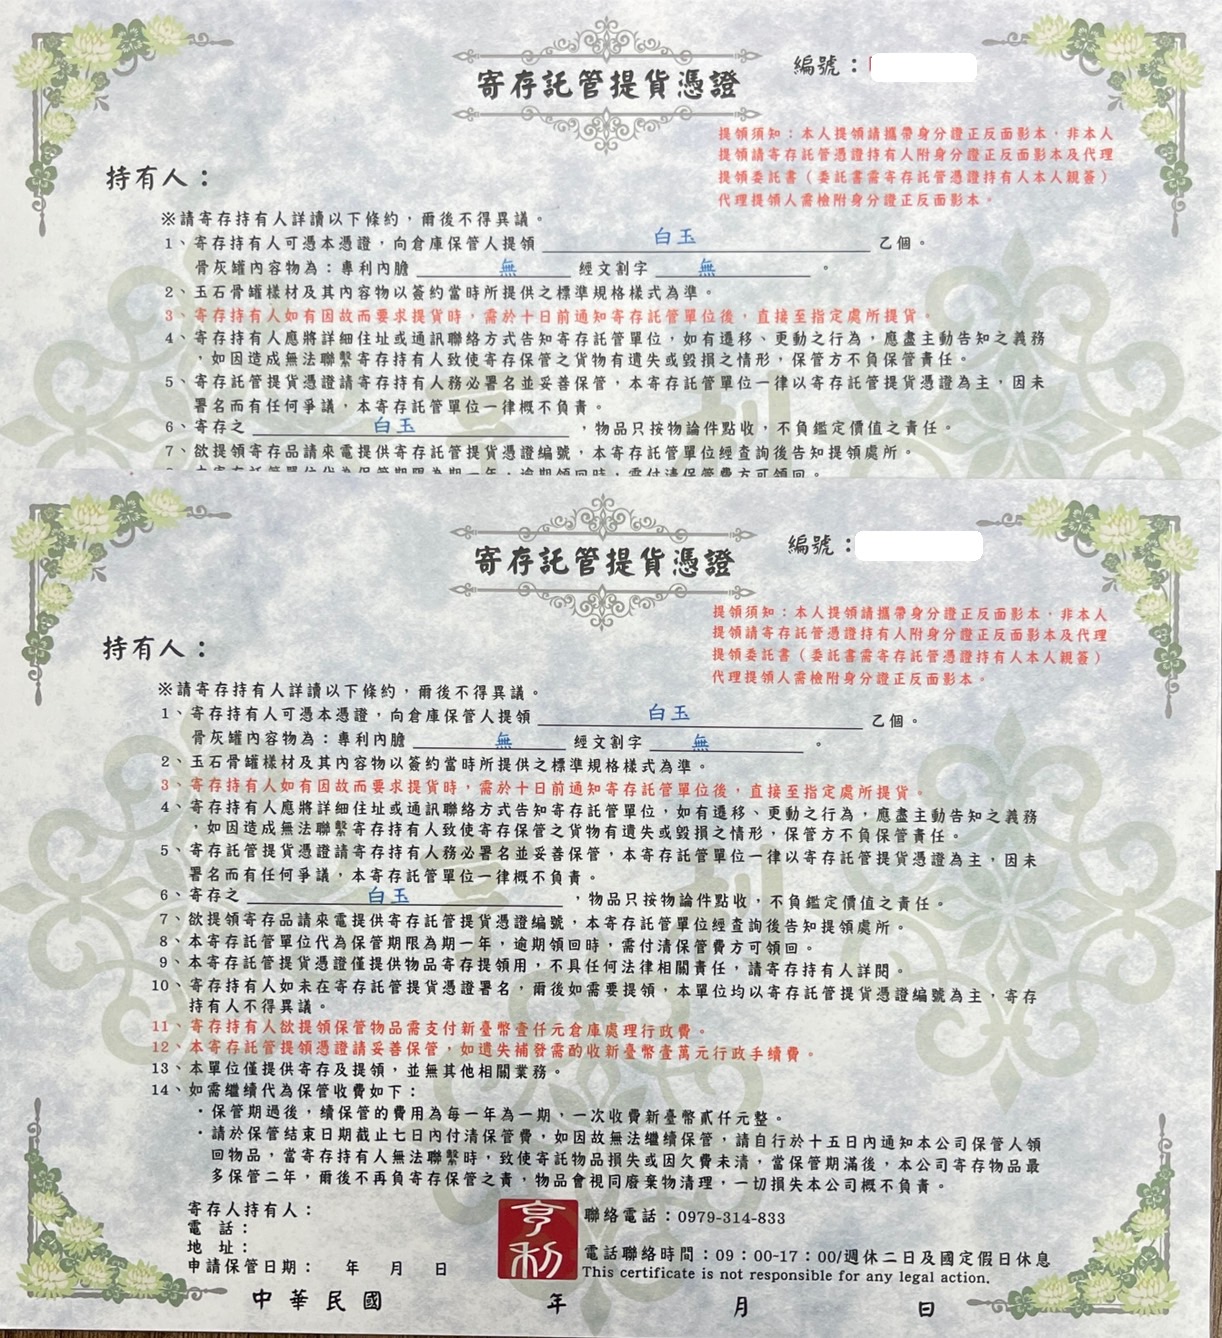 寄存託管提貨憑證
編號：
提領須知：本人提領請攜帶身分證正反面影本，非本人
提領請寄存託管憑證持有人附身分證正反面影本及代理
提領委託書（委託書需寄存託管憑證持有人本人親簽）
代理提領人需檢附身分證正反面影本。
持有人：
※請寄存持有人詳讀以下條約，爾後不得異議。
1、寄存持有人可憑本憑證，向倉庫保管人提領 白玉 乙個。
骨灰罐內容物為：專利內膽 無 經文割字 無 。
2、玉石骨罐樣材及其內容物以簽約當時所提供之標準規格樣式為準。
3、寄存持有人如有因故而要求提貨時，需於十日前通知寄存託管單位後，直接至指定處所提貨。
4、寄存持有人應將詳細住址或通訊聯絡方式告知寄存託管單位，如有遷移、更動之行為，應盡主動告知之義務
，如因造成無法聯繫寄存持有人致使寄存保管之貨物有遺失或毀損之情形，保管方不負保管責任。
5、寄存託管提貨憑證請寄存持有人務必署名並妥善保管，本寄存託管單位一律以寄存託管提貨憑證為主，因未
署名而有任何爭議，本寄存託管單位一律概不負責。
6、寄存之 白玉 ，物品只按物論件點收，不負鑑定價值之責任。
7、欲提領寄存品請來電提供寄存託管提貨憑證編號，本寄存託管單位經查詢後告知提領處所。
8、本寄存託管單位代為保管期限為期一年，逾期領回時，需付清保管費方可領回。
寄存託管提貨憑證
編號：
提領須知：本人提領請攜帶身分證正反面影本，非本人
提領請寄存託管憑證持有人附身分證正反面影本及代理
提領委託書（委託書需寄存託管憑證持有人本人親簽）
代理提領人需檢附身分證正反面影本。
持有人：
※請寄存持有人詳讀以下條約，爾後不得異議。
1、寄存持有人可憑本憑證，向倉庫保管人提領 白玉 乙個。
骨灰罐內容物為：專利內膽 無 經文割字 無 。
2、玉石骨罐樣材及其內容物以簽約當時所提供之標準規格樣式為準。
3、寄存持有人如有因故而要求提貨時，需於十日前通知寄存託管單位後，直接至指定處所提貨。
4、寄存持有人應將詳細住址或通訊聯絡方式告知寄存託管單位，如有遷移、更動之行為，應盡主動告知之義務
，如因造成無法聯繫寄存持有人致使寄存保管之貨物有遺失或毀損之情形，保管方不負保管責任。
5、寄存託管提貨憑證請寄存持有人務必署名並妥善保管，本寄存託管單位一律以寄存託管提貨憑證為主，因未
署名而有任何爭議，本寄存託管單位一律概不負責。
6、寄存之 白玉 ，物品只按物論件點收，不負鑑定價值之責任。
7、欲提領寄存品請來電提供寄存託管提貨憑證編號，本寄存託管單位經查詢後告知提領處所。
8、本寄存託管單位代為保管期限為期一年，逾期領回時，需付清保管費方可領回。
9、本寄存託管提貨憑證僅提供物品寄存提領用，不具任何法律相關責任，請寄存持有人詳閱。
10、寄存持有人如未在寄存託管提貨憑證署名，爾後如需要提領，本單位均以寄存託管提貨憑證編號為主，寄存
持有人不得異議。
11、寄存持有人欲提領保管物品需支付新臺幣壹仟元倉庫處理行政費。
12、本寄存託管提領憑證請妥善保管，如遺失補發需酌收新臺幣壹萬元行政手續費。
13、本單位僅提供寄存及提領，並無其他相關業務。
14、如需繼續代為保管收費如下：
・保管期過後，續保管的費用為每一年為一期，一次收費新臺幣貳仟元整。
・請於保管結束日期截止七日內付清保管費，如因故無法繼續保管，請自行於十五日內通知本公司保管人領
回物品，當寄存持有人無法聯繫時，致使寄託物品損失或因欠費未清，當保管期滿後，本公司寄存物品最
多保管二年，爾後不再負寄存保管之責，物品會視同廢棄物清理，一切損失本公司概不負責。
寄存人持有人：
電 話：
地 址：
申請保管日期： 年 月 日
亨利
聯絡電話：0979-314-833
電話聯絡時間：09：00-17：00/週休二日及國定假日休息
This certificate is not responsible for any legal action.
中華民國 年 月 日